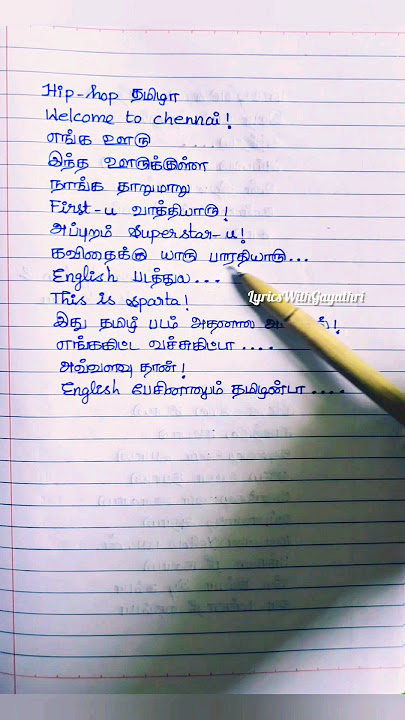 Hip-hop தமிழா
Welcome to chennai!
எங்க ஊரு ....
இந்த ஊருக்குள்ள
நாங்க தாறுமாறு
First-u வாத்தியாரு!
அப்புறம் Superstar-u!
கவிதைக்கு யாரு பாரதியாரு...
English படத்துல...
This is sparta!
LyricsWithGayathri
இது தமிழ் படம் அதனால
எங்ககிட்ட வச்சுகிட்டா ....
அவ்வளவு தான்!
English பேசினாலும் தமிழன்டா ....